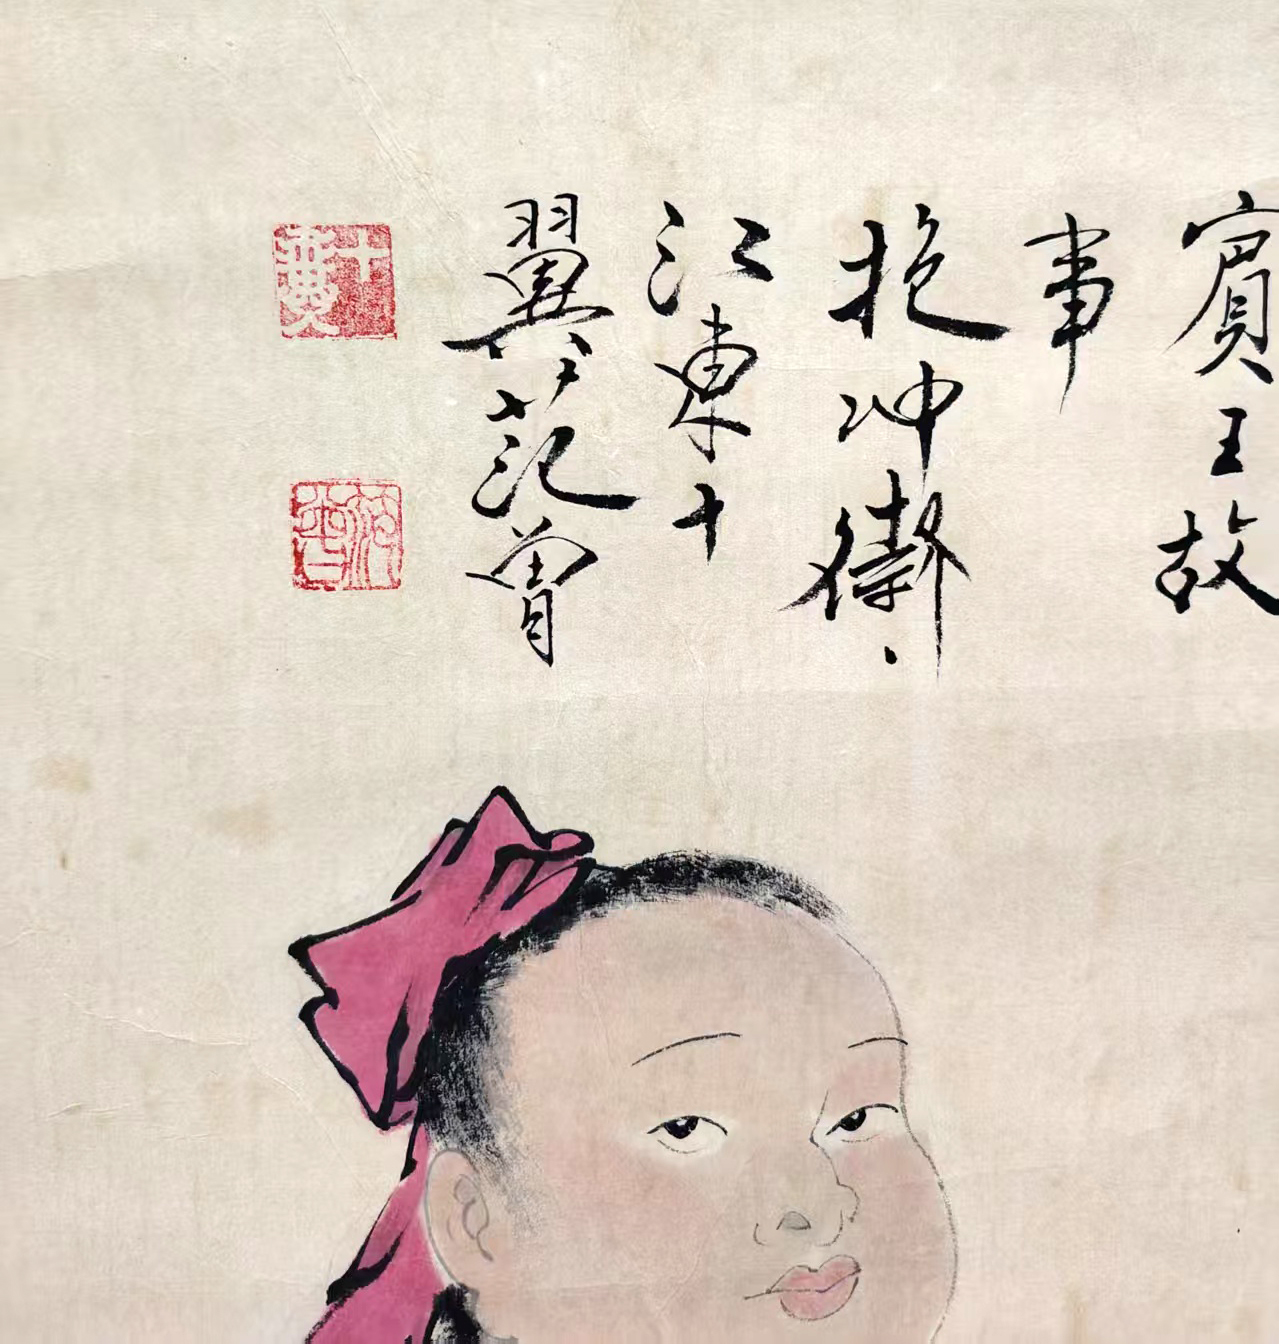 賓王故
事
抱冲齋
江東十
翼范曾
十翼
范曾